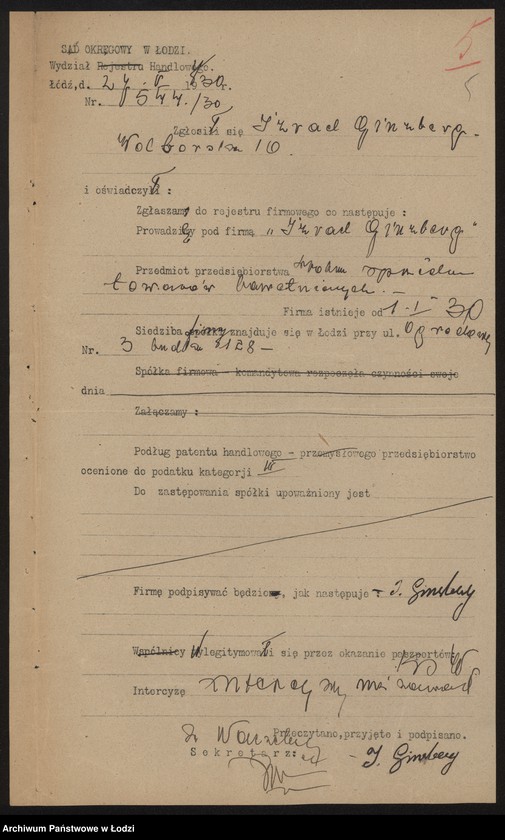 5
SĄD OKRĘGOWY W ŁODZI.
5
Wydział Rejestru Handlowego.
Łódź, d. 27. V 1930 r.
Nr. 8544/30
Zgłosił się Izrael Ginzberg.
Wolborska 10.
i oświadczył:
Zgłaszam do rejestru firmowego co następuje :
Prowadzę pod firmą „Izrael Ginzberg"
Przedmiot przedsiębiorstwa
towarów bawełnianych. -
Firma istnieje od 1-I- 30
Siedziba firmy znajduje się w Łodzi przy ul. Ogrodowej
Nr. 3 budka 2128 -
Spółka firmowa - komandytowa rozpoczęła czynności swoje
dnia
Załączamy :
Podług patentu handlowego - przemysłowego przedsiębiorstwo
ocenione do podatku kategorji III
Do zastępowania spółki upoważniony jest
Firmę podpisywać będzie, jak następuje - I. Ginzberg
Wspólnicy Wylegitymował się przez okazanie
Intercyzę intercyzy nie zawarł
Przeczytano, przyjęte i podpisano.
Sekretarz:
- I. Ginzberg
Archiwum Państwowe w Łodzi